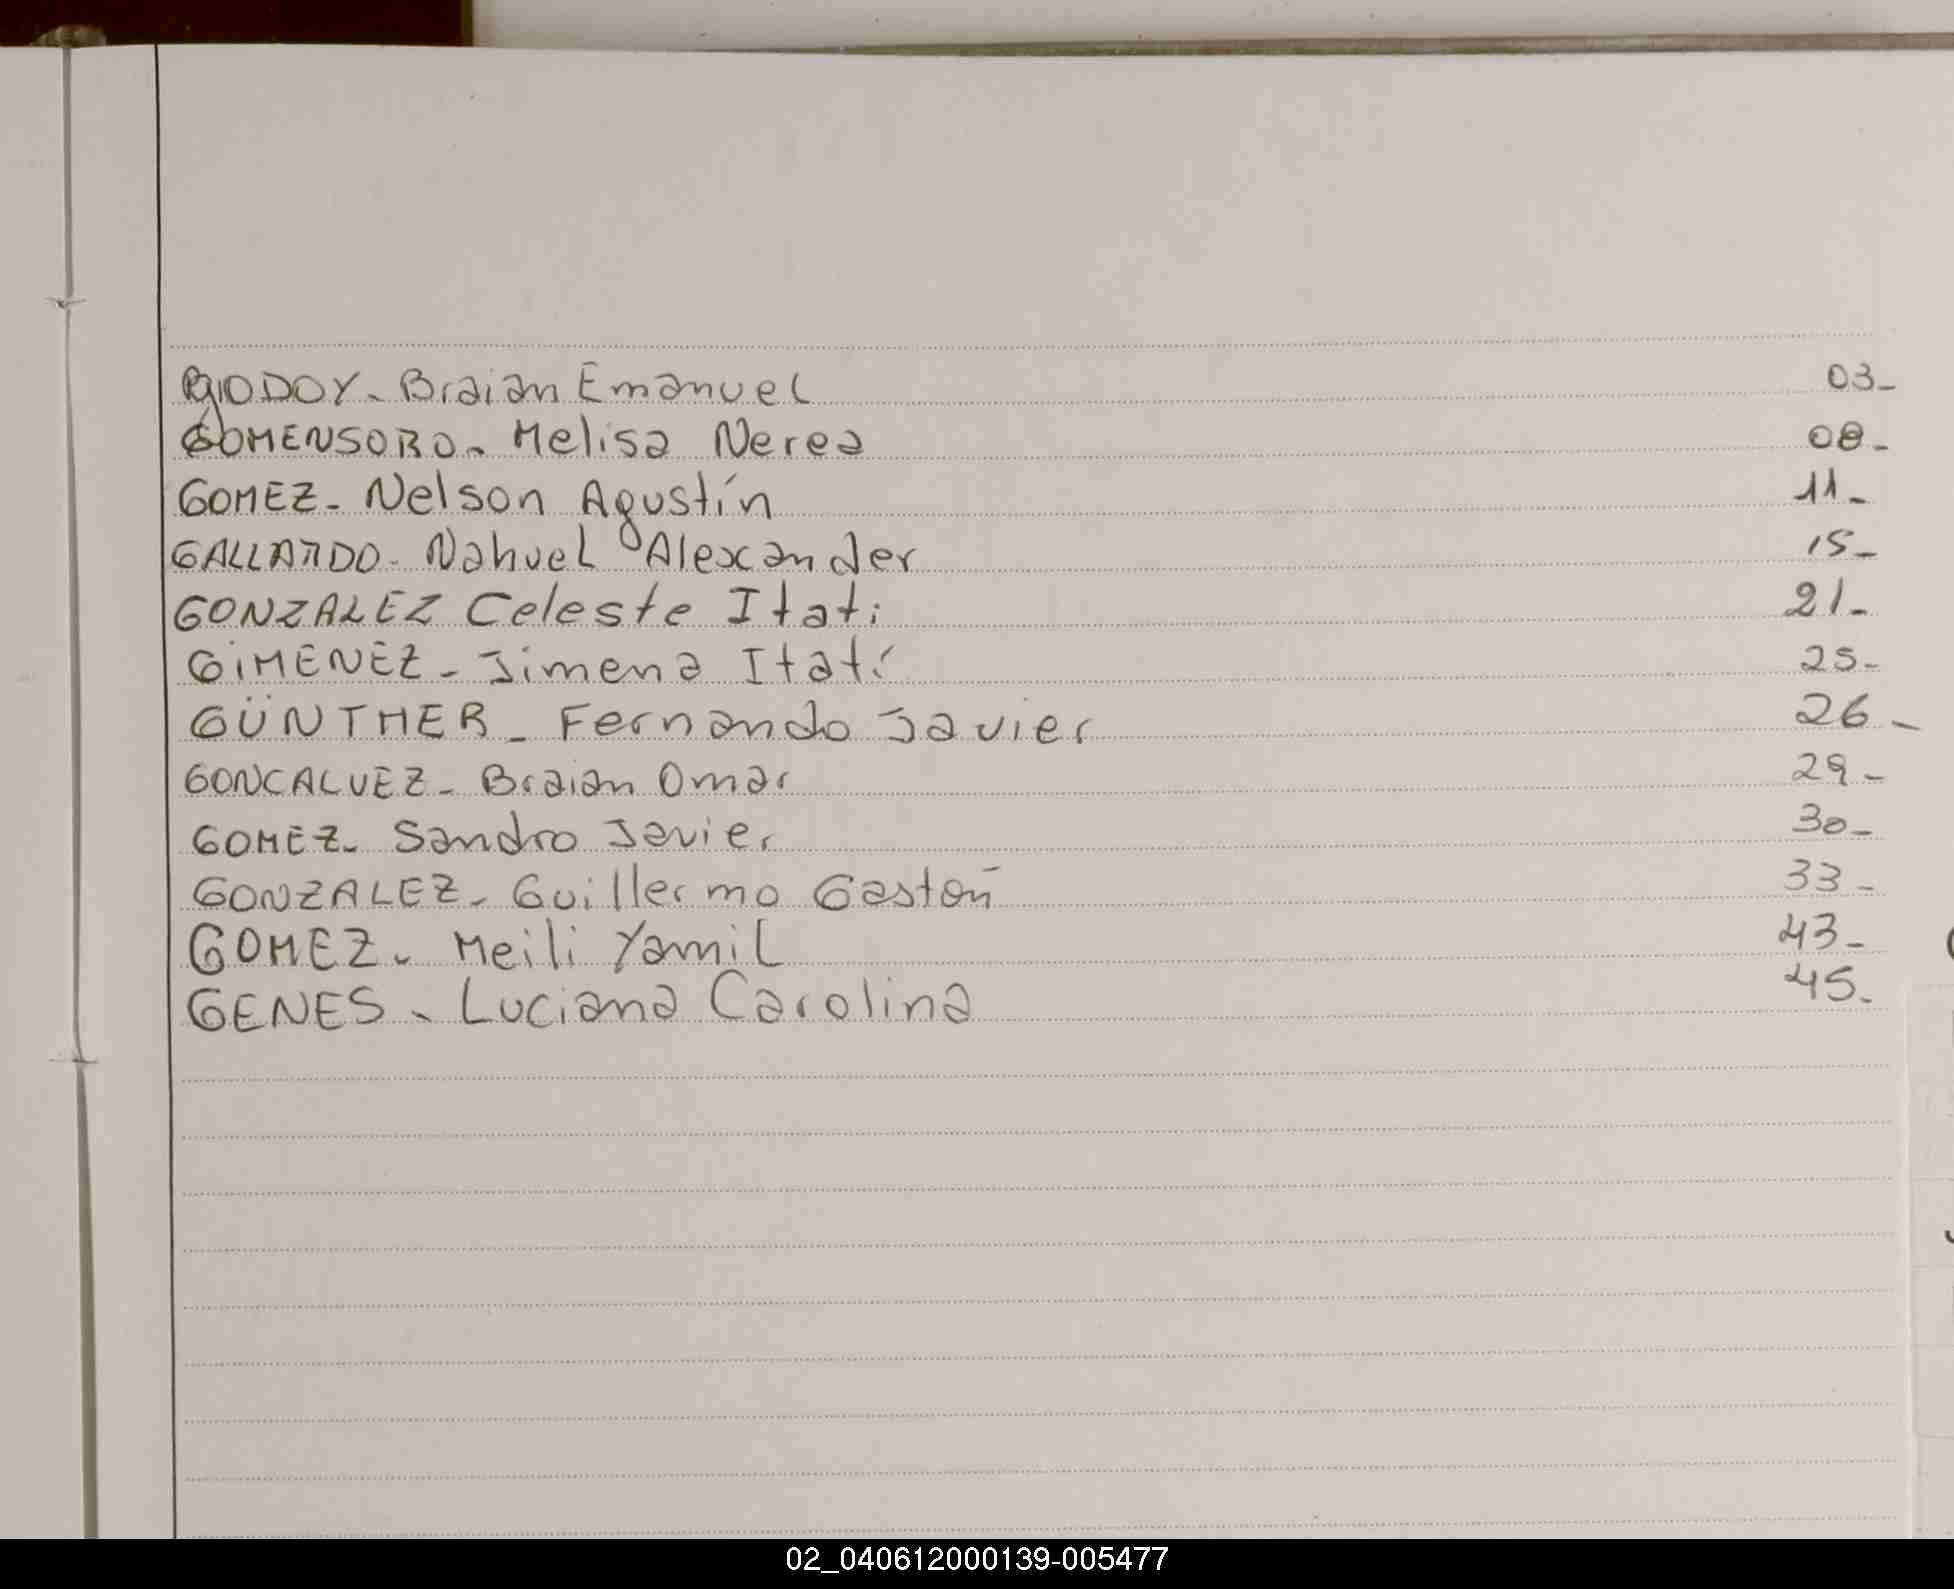 GODOY - Braian Emanuel 03-
GOMENSORO - Melisa Nerea 08-
GOMEZ - Nelson Agustín 11-
GALLARDO - Nahuel Alexander 15-
GONZALEZ Celeste Itati 21-
GiMENEZ - Jimena Itatí 25-
GÜNTHER - Fernando Javier 26-
GONCALVEZ - Braian Omar 29-
GOMEZ - Sandro Javier 30-
GONZALEZ - Guillermo Gastón 33-
GOMEZ - Meili Yamil 43-
GENES - Luciana Carolina 45-
02_040612000139-005477